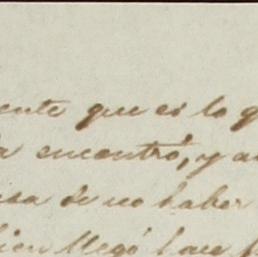 ente que es lo q
a encontró, y a
isa de no haber
bien llegó hace